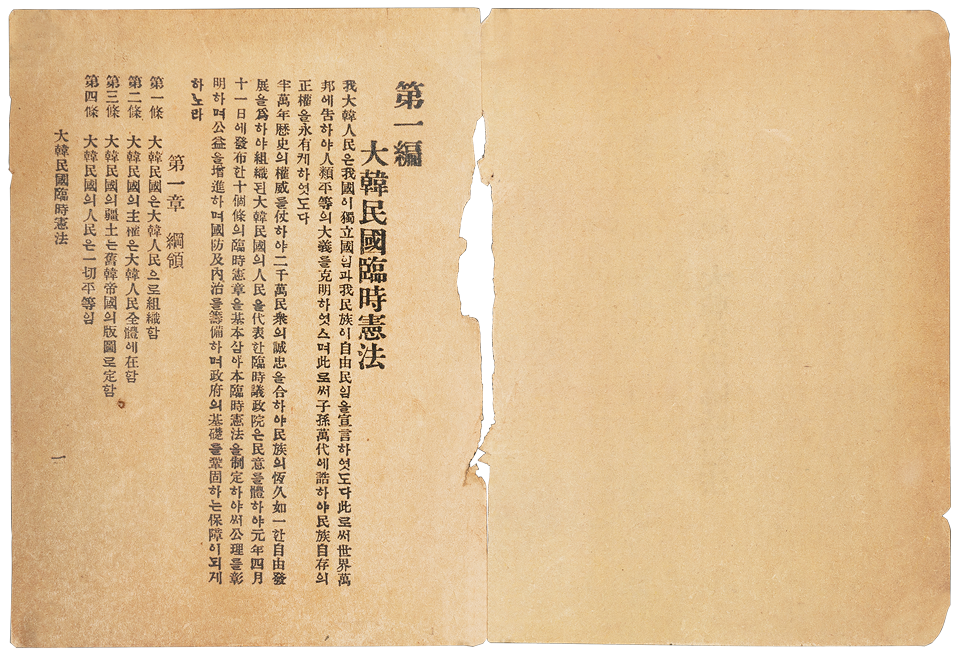 第一編
大韓民國臨時憲法
我大韓人民은我國이獨立國임과我民族이自由民임을宣言하엿도다此로써世界萬
邦에告하야人類平等의大義를克明하엿스며此로써子孫萬代에誥하야民族自存의
正權을永有케하엿도다
半萬年歷史의權威를仗하야二千萬民衆의誠忠을合하야民族의恆久如一한自由發
展을爲하야組織된大韓民國의人民을代表한臨時議政院은民意를體하야元年四月
十一日에發布한十個條의臨時憲章을基本삼아本臨時憲法을制定하야써公理를彰
明하며公益을增進하며國防及內治를籌備하며政府의基礎를鞏固하는保障이되게
하노라
第一章 綱領
第一條 大韓民國은大韓人民으로組織함
第二條 大韓民國의主權은大韓人民全體에在함
第三條 大韓民國의疆土는舊韓帝國의版圖로定함
第四條 大韓民國의人民은一切平等임
大韓民國臨時憲法
一